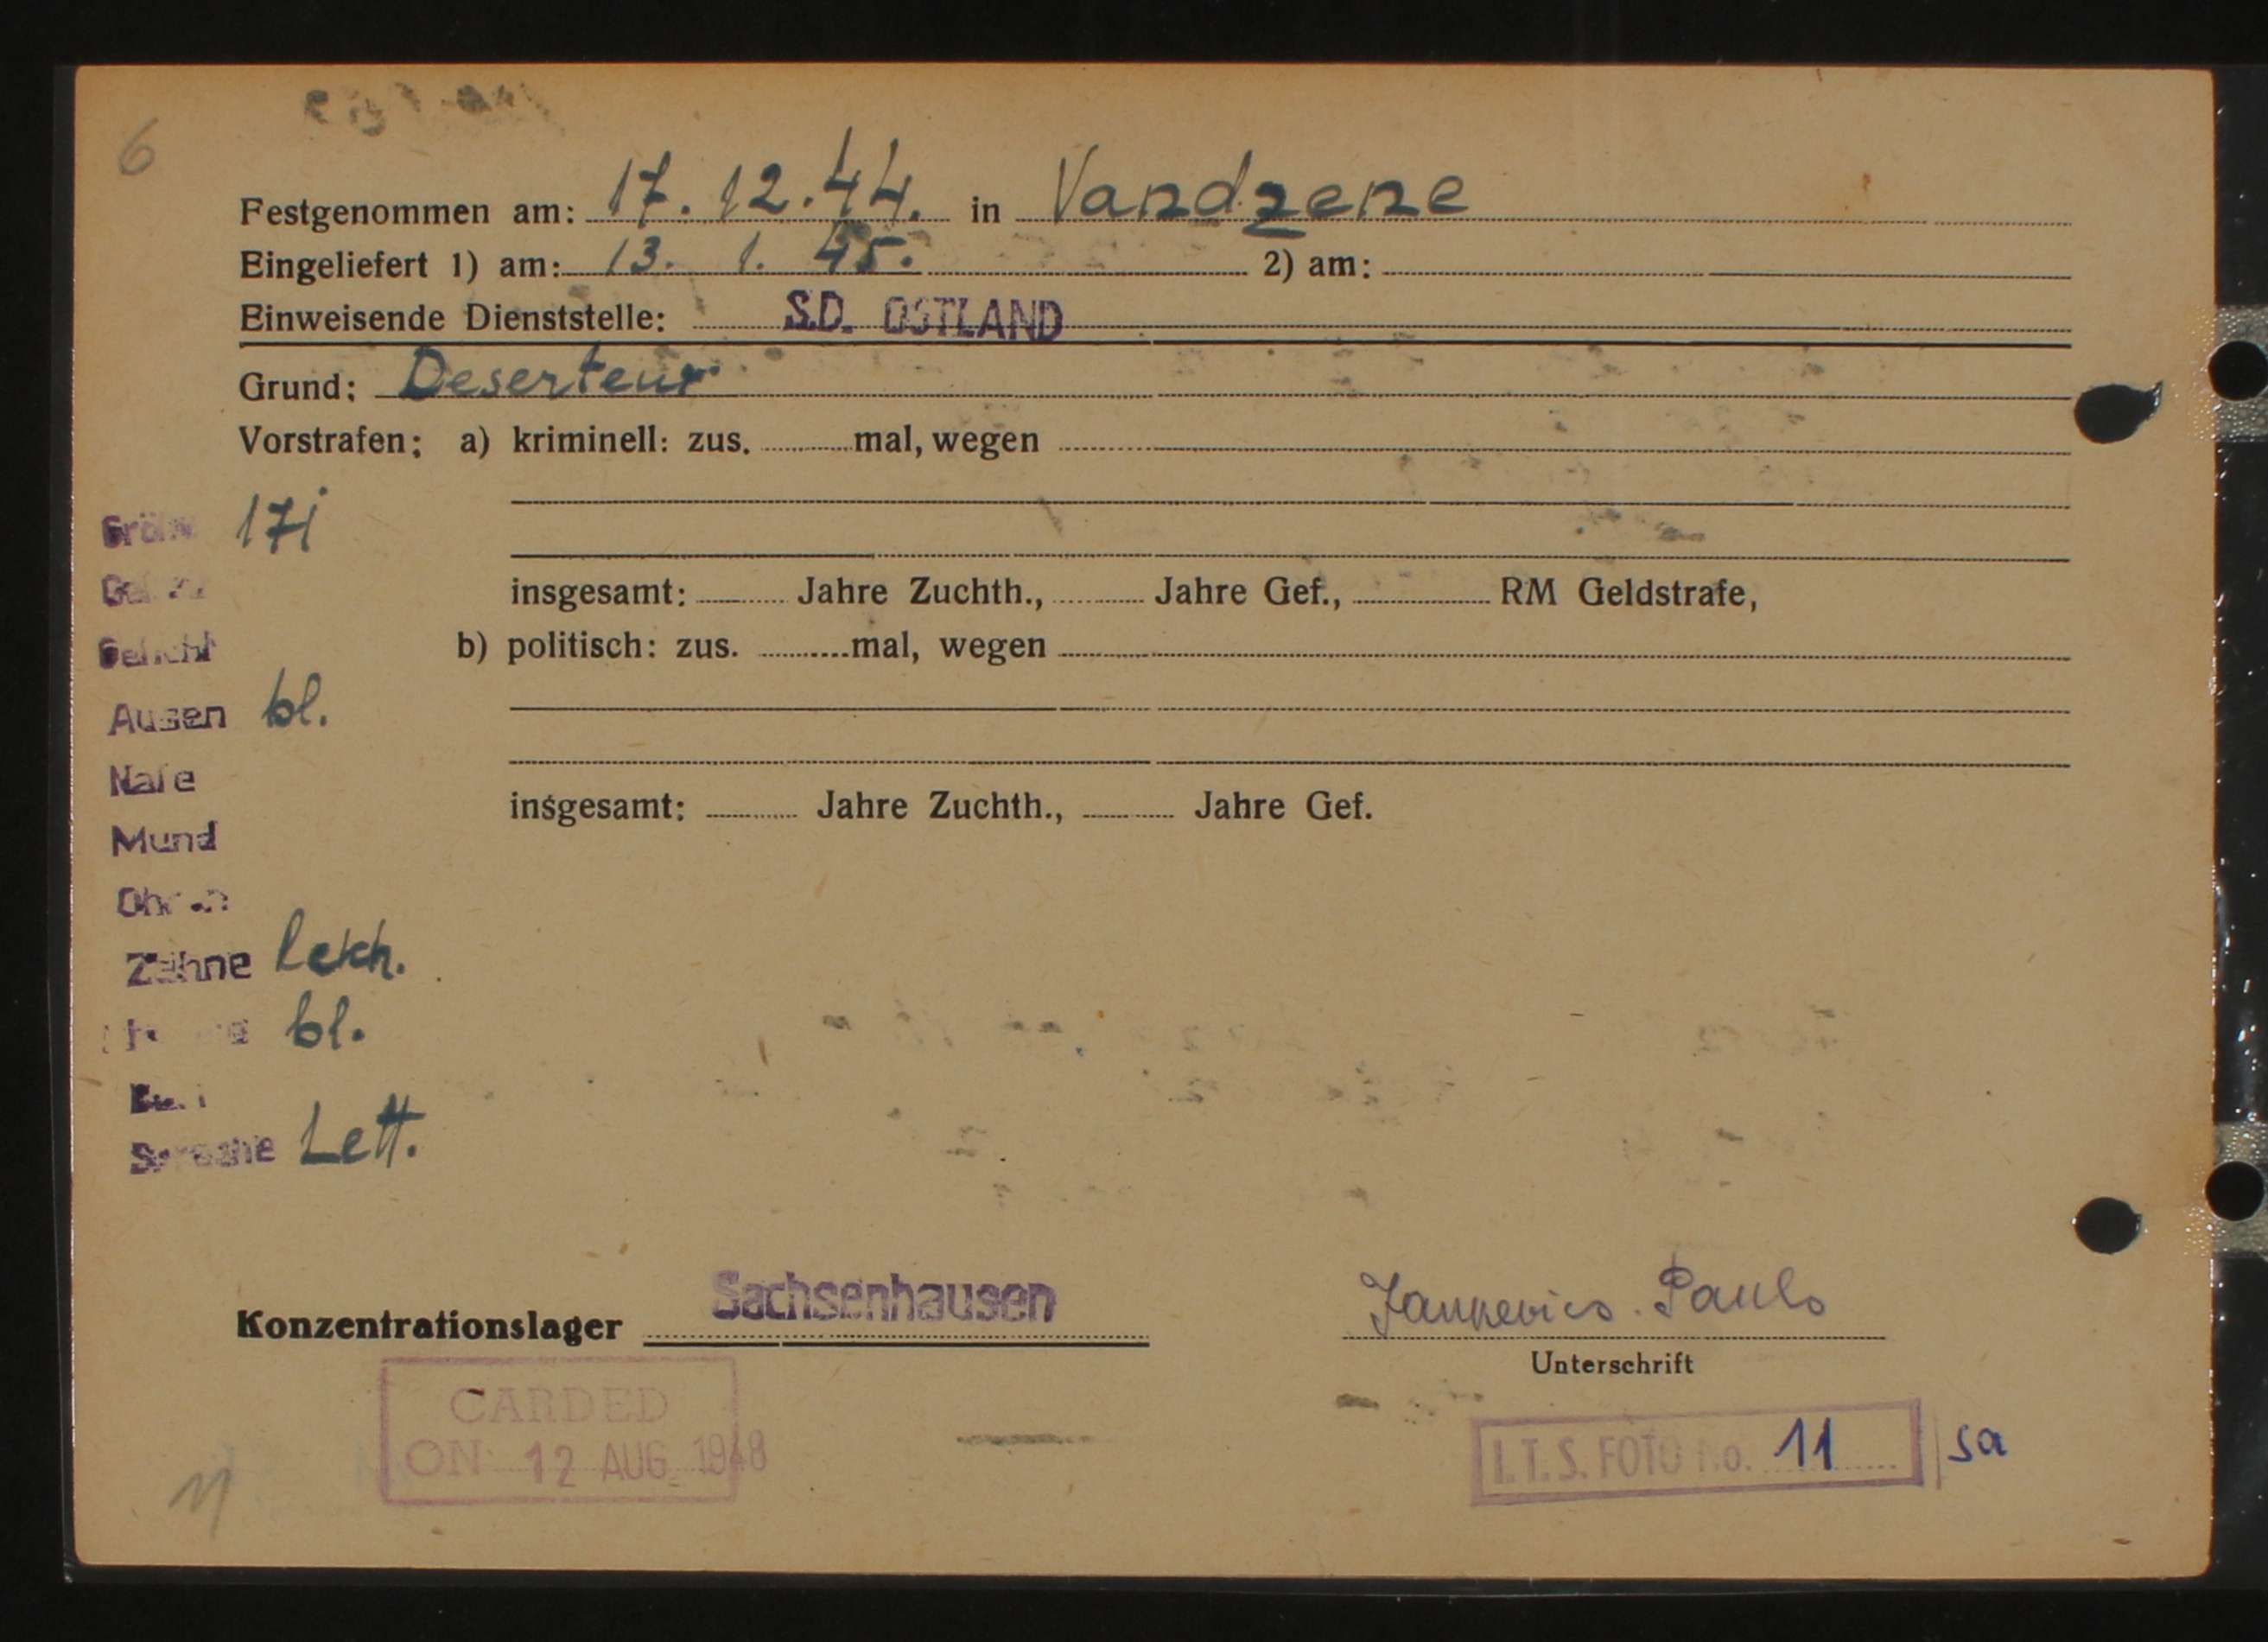 6
Festgenommen am: 17.12.44. in Vandzene
Eingeliefert 1) am: 13. 1. 45. 2) am:
Einweisende Dienststelle: S.D. OSTLAND
Grund: Deserteur
Vorstrafen: a) kriminell: zus. mal, wegen
Größe 171
insgesamt: Jahre Zuchth., Jahre Gef., RM Geldstrafe,
Gesicht
b) politisch: zus. mal, wegen
Augen bl.
Nase
insgesamt: Jahre Zuchth., Jahre Gef.
Mund
Ohren
Zähne
bl.
Sprache Lett.
Konzentrationslager Sachsenhausen
Jankevics Pauls
Unterschrift
CARDED
ON 12 AUG 1948
I.T.S. FOTO No. 11 sa